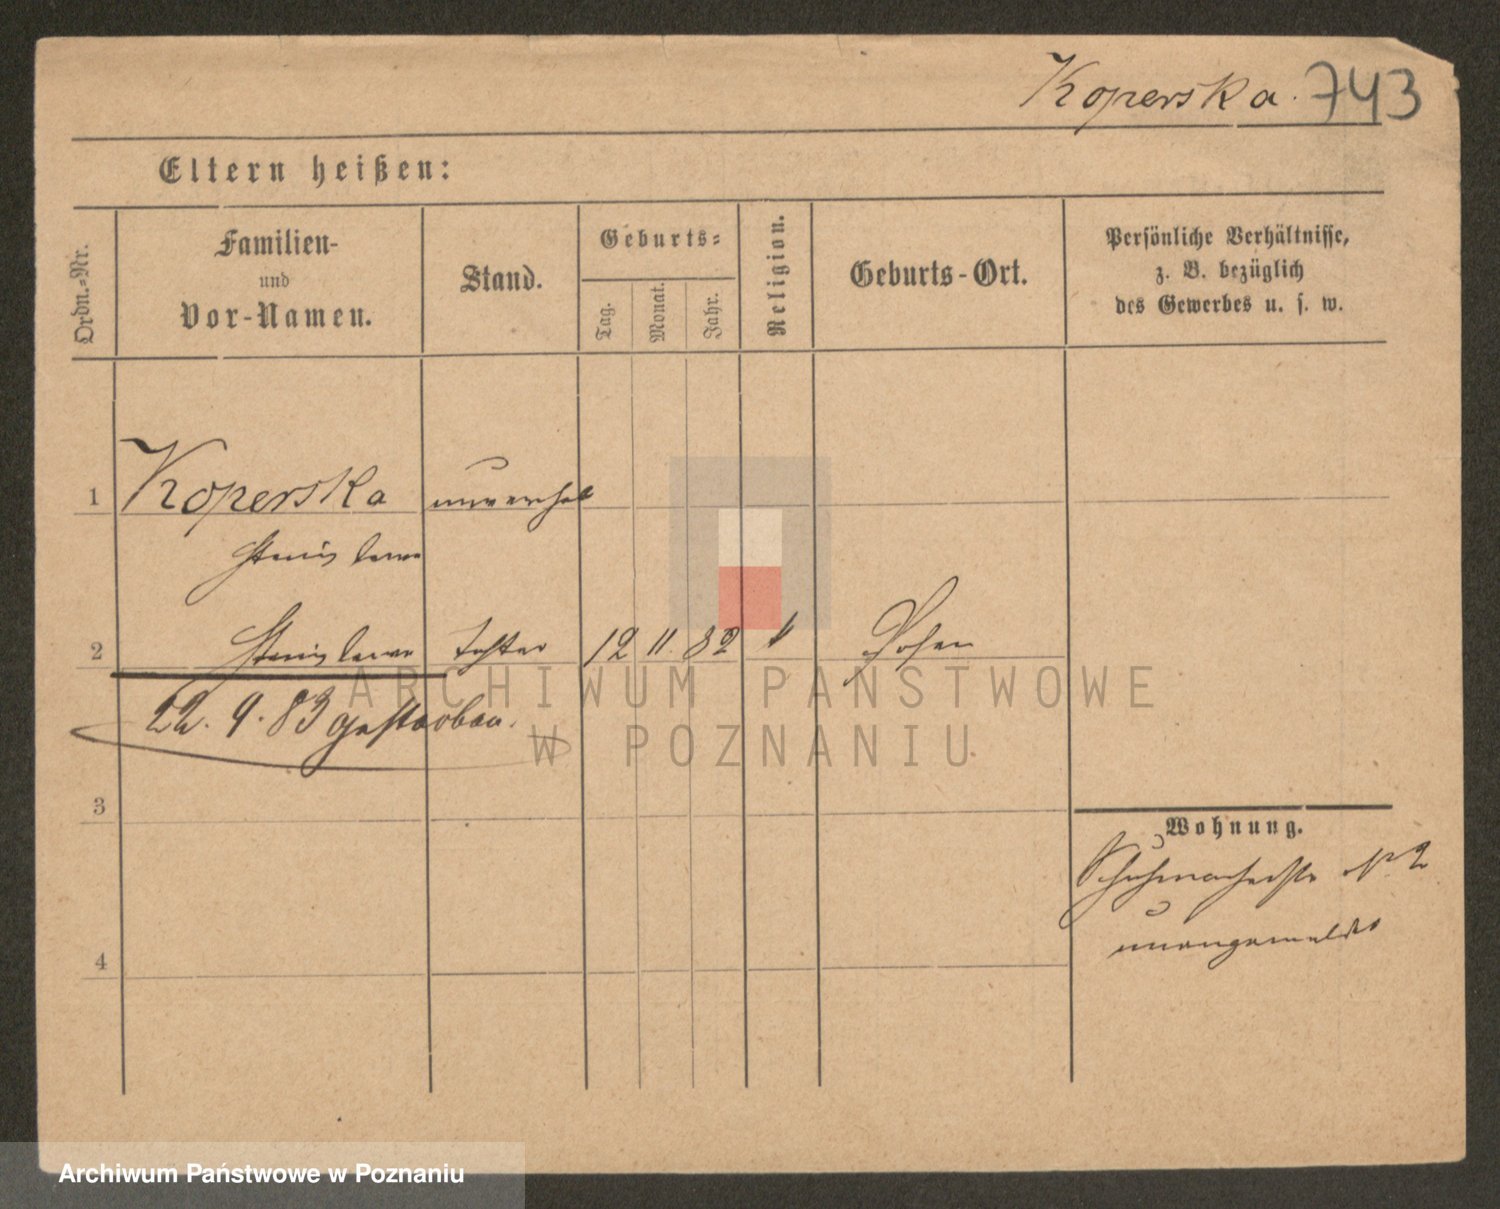 Koperska. 743
Eltern heißen:
Ordn.-Nr.
Familien-
und
Vor-Namen.
Stand.
Geburts-
Tag.
Monat.
Jahr.
Religion.
Geburts-Ort.
Persönliche Verhältnisse,
z. B. bezüglich
des Gewerbes u. s. w.
1 Koperska unvereh
Stanislawa
2 Stanislawa Tochter 12 11. 82 Posen
22. 9. 83 gestorben.
3
4
Wohnung.
Schuhmacherstr No 2
unangemeldet
ARCHIWUM PAŃSTWOWE
W POZNANIU
Archiwum Państwowe w Poznaniu